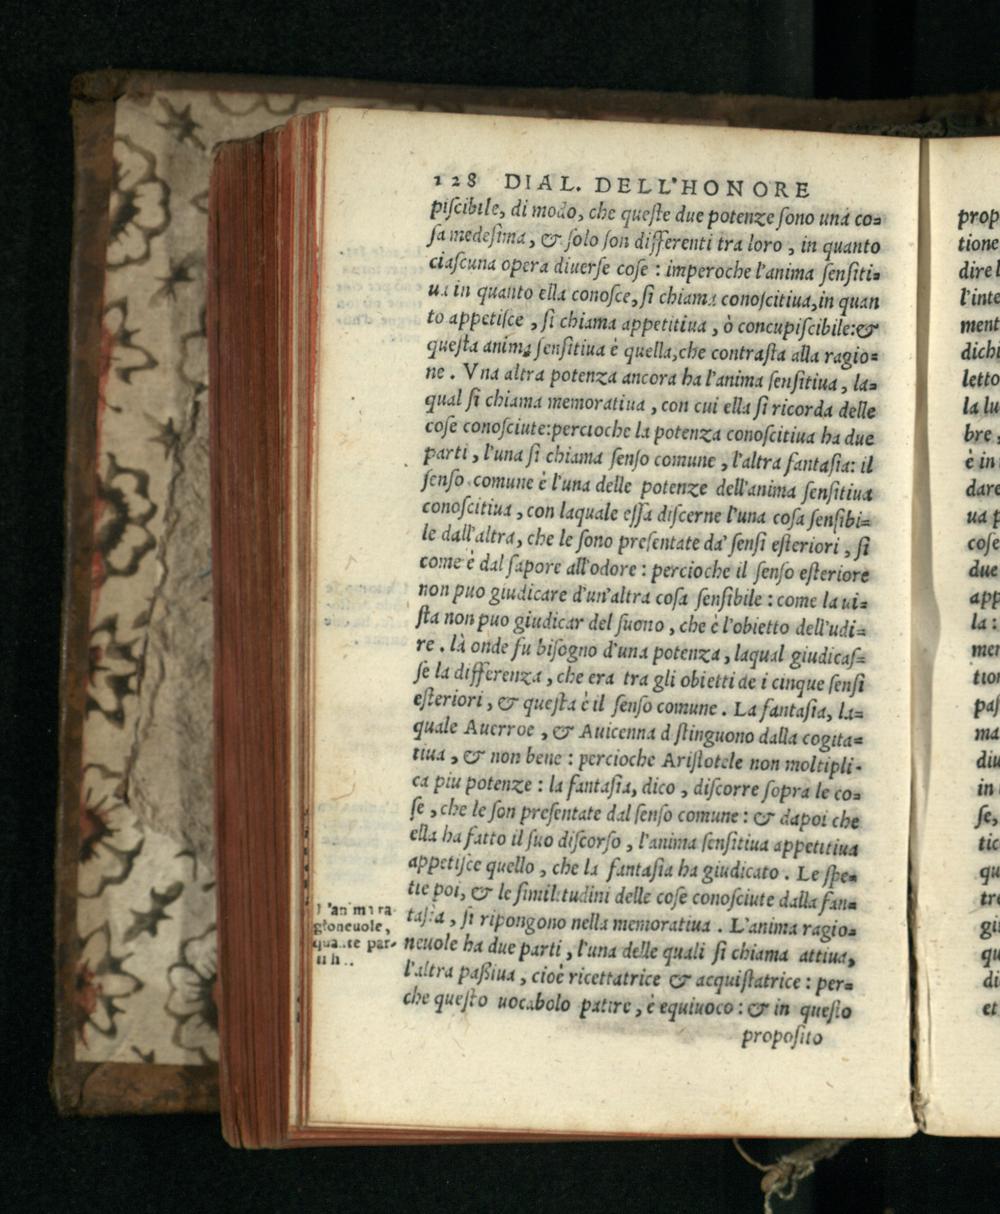 128 DIAL. DELL'HONORE
piſcibile, di modo, che queſte due potenze ſono una co=
ſa medeſima, & ſolo ſon differenti tra loro, in quanto
ciaſcuna opera diuerſe coſe : imperoche l'anima ſenſiti=
ua in quanto ella conoſce, ſi chiama conoſcitiua, in quan
to appetiſce, ſi chiama appetitiua, ò concupiſcibile: &
queſta anima ſenſitiua è quella, che contraſta alla ragio=
ne. Vna altra potenza ancora ha l'anima ſenſitiua, la=
qual ſi chiama memoratiua, con cui ella ſi ricorda delle
coſe conoſciute: percioche la potenza conoſcitiua ha due
parti, l'una ſi chiama ſenſo comune, l'altra fantaſia: il
ſenſo comune è l'una delle potenze dell'anima ſenſitiua
conoſcitiua, con laquale eſſa diſcerne l'una coſa ſenſibi=
le dall'altra, che le ſono preſentate da' ſenſi eſteriori, ſi
come è dal ſapore all'odore : percioche il ſenſo eſteriore
non puo giudicare d'un'altra coſa ſenſibile : come la ui=
ſta non puo giudicar del ſuono, che è l'obietto dell'udi=
re. là onde fu biſogno d'una potenza, laqual giudicaſ=
ſe la differenza, che era tra gli obietti de i cinque ſenſi
eſteriori, & queſta è il ſenſo comune. La fantaſia, la=
quale Auerroe, & Auicenna d ſtinguono dalla cogita=
tiua, & non bene : percioche Ariſtotele non moltipli-
ca piu potenze : la fantaſia, dico, diſcorre ſopra le co=
ſe, che le ſon preſentate dal ſenſo comune : & dapoi che
ella ha fatto il ſuo diſcorſo, l'anima ſenſitiua appetitiua
appetiſce quello, che la fantaſia ha giudicato. Le ſpe=
tie poi, & le ſimilitudini delle coſe conoſciute dalla fan=
taſia, ſi ripongono nella memoratiua. L'anima ragio=
neuole ha due parti, l'una delle quali ſi chiama attiua,
l'altra paßiua, cioè ricettatrice & acquiſtatrice : per=
che queſto uocabolo patire, è equiuoco : & in queſto
propoſito
L'anima ra
gioneuole,
quante par-
prop
tione
dire l
l'inte
ment
dichi
letto
la lu
bre,
è in
dare
ua p
coſe
due
app
la :
mer
tion
paſ
ma
diu
in
ſe,
tic
qu
tre
gi
qu
di
et